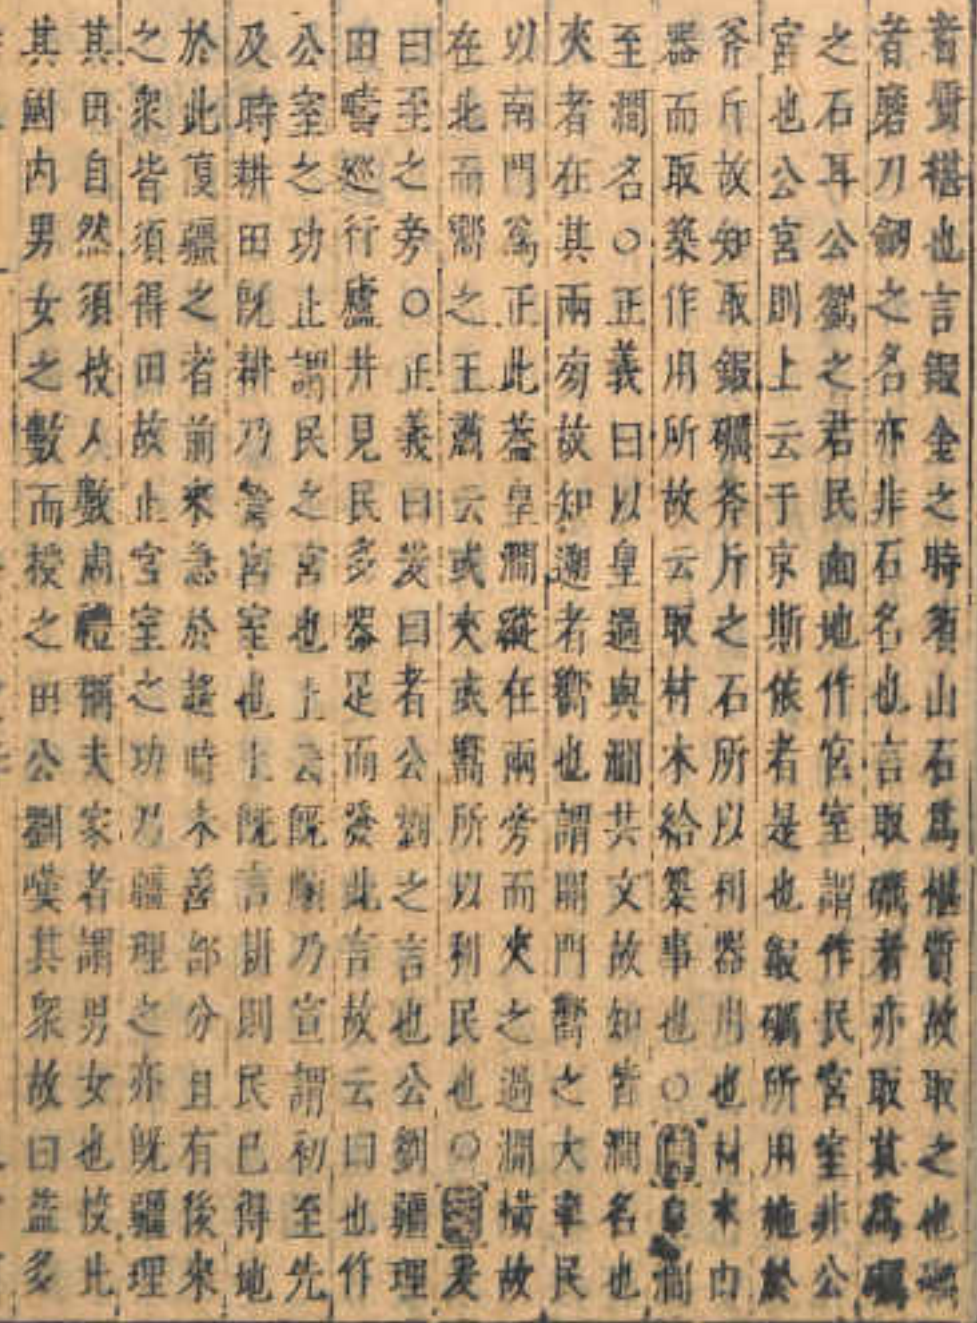 者質椹也言鍛金之時著山石爲椹質故取之也礪
者磨刀劒之名亦非石名也言取礪者亦取其爲礪
之石耳公劉之君民面地作宮室謂作民宮室非公
宮也公宮則上云于京斯依者是也鍛礪所用施於
斧斤故知取鍛礪斧斤之石所以利器用也材木由
器而取築作用所故云取材木給築事也○傳皇澗
至澗名○正義曰以皇過與澗共文故知皆澗名也
夾者在其兩旁故知遡者嚮也謂開門嚮之大率民
以南門爲正此蓋皇澗縱在兩旁而夾之過澗橫故
在北而嚮之王肅云或夾或嚮所以利民也○箋爰
曰至之旁○正義曰爰曰者公劉之言也公劉疆理
田疇巡行廬井見民多器足而發此言故云曰也作
公室之功止謂民之宮也上云既順乃宣謂初至先
及時耕田既耕乃營宮室也上既言耕則民已得地
於此復疆之者前來急於趨時未善部分且有後來
之衆皆須得田故止宮室之功乃疆理之亦既疆理
其田自然須校人數周禮稱夫家者謂男女也校比
其國内男女之數而授之田公劉嘆其衆故曰益多